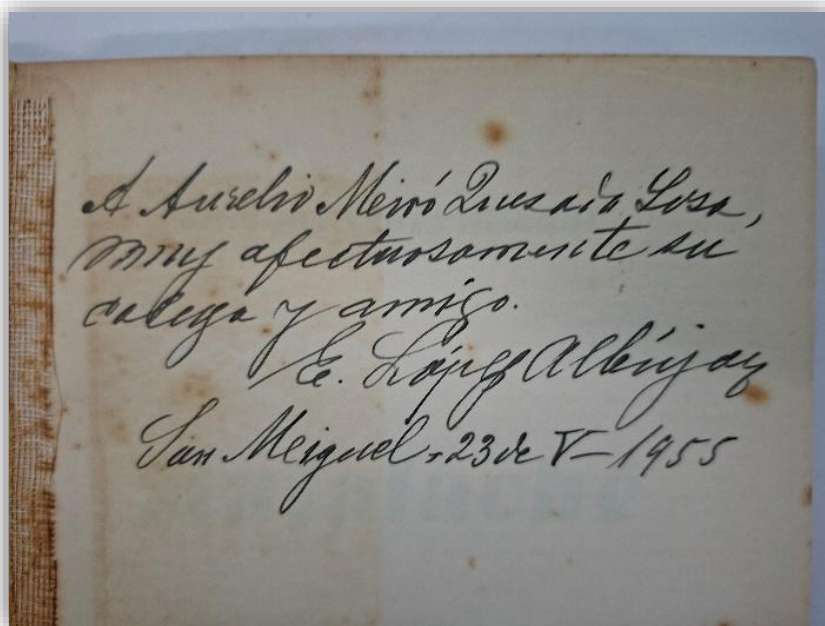 A Aurelio Miró Quesada Sosa,
muy afectuosamente su
colega y amigo.
E. López Albújar
San Miguel, 23 de V- 1955